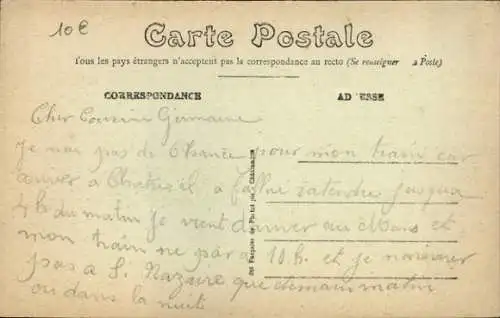 10€
Carte Postale
Tous les pays étrangers n'acceptent pas la correspondance au recto (Se renseigner à la Poste)
CORRESPONDANCE
AD ESSE
Cher Cousin Germaine
Je n'ai pas de Chance pour mon train car
arriver à a fallu ratendre jusqua
4 h du matin Je vient d'arriver au Mans et
mon train ne par a 10 h. et je n'ariverer
pas a S. Nazaire que demain matin
ou dans la nuit